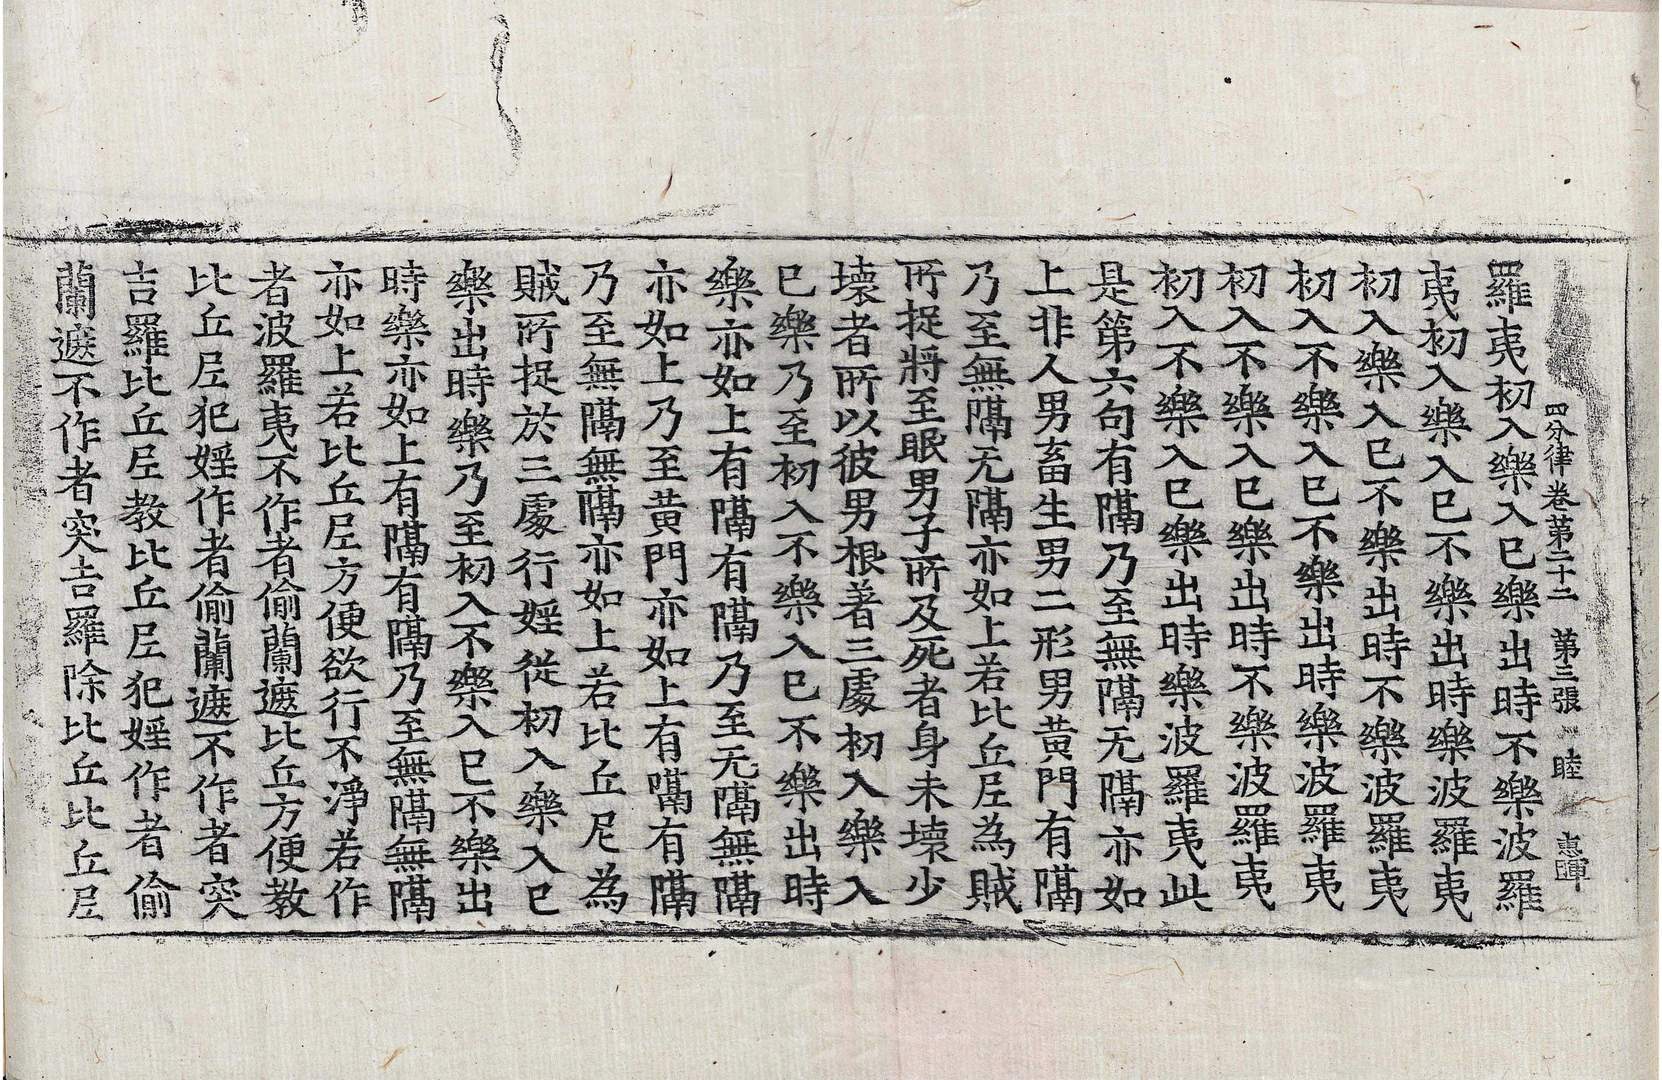 四分律卷第二十二　第三張　睦　惠暉
羅夷初入樂入已樂出時不樂波羅
夷初入樂入已不樂出時樂波羅夷
初入樂入已不樂出時不樂波羅夷
初入不樂入已不樂出時樂波羅夷
初入不樂入已樂出時不樂波羅夷
初入不樂入已樂出時樂波羅夷此
是第六句有隔乃至無隔无隔亦如
上非人男畜生男二形男黃門有隔
乃至無隔无隔亦如上若比丘尼為賊
所捉將至眠男子所及死者身未壞少
壞者所以彼男根著三處初入樂入
已樂乃至初入不樂入已不樂出時
樂亦如上有隔有隔乃至无隔無隔
亦如上乃至黃門亦如上有隔有隔
乃至無隔無隔亦如上若比丘尼為
賊所捉於三處行婬從初入樂入已
樂出時樂乃至初入不樂入已不樂出
時樂亦如上有隔有隔乃至無隔無隔
亦如上若比丘尼方便欲行不淨若作
者波羅夷不作者偷蘭遮比丘方便教
比丘尼犯婬作者偷蘭遮不作者突
吉羅比丘尼教比丘尼犯婬作者偷
蘭遮不作者突吉羅除比丘比丘尼